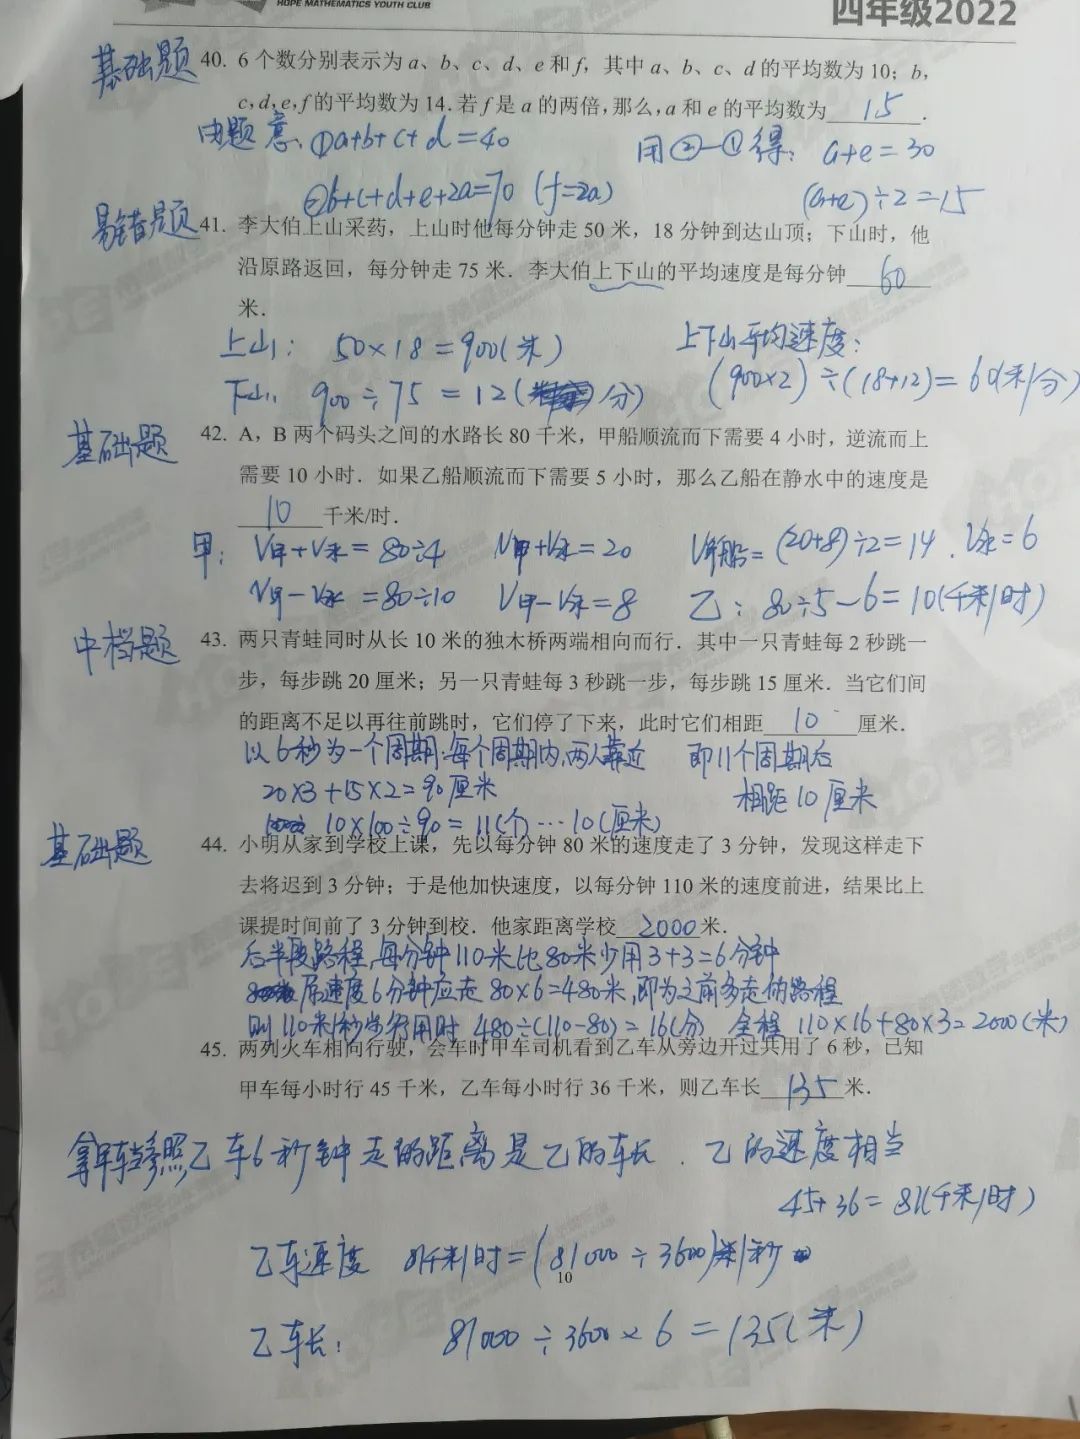 HOPE MATHEMATICS YOUTH CLUB
四年级2022
基础题
40. 6 个数分别表示为 a、b、c、d、e 和 f，其中 a、b、c、d 的平均数为 10；b，
c,d,e,f 的平均数为 14. 若 f 是 a 的两倍, 那么, a 和 e 的平均数为 15 .
由题意，①a+b+c+d=40
用②-①得：a+e=30
②b+c+d+e+2a=70 (f=2a)
(a+e)÷2=15
易错题
41. 李大伯上山采药，上山时他每分钟走 50 米，18 分钟到达山顶；下山时，他
沿原路返回，每分钟走 75 米．李大伯上下山的平均速度是每分钟 60
米．
上山：50×18=900(米)
上下山平均速度：
下山：900÷75=12(分)
(900×2)÷(18+12)=60(米/分)
基础题
42. A，B 两个码头之间的水路长 80 千米，甲船顺流而下需要 4 小时，逆流而上
需要 10 小时．如果乙船顺流而下需要 5 小时，那么乙船在静水中的速度是
10 千米/时．
甲：V甲+V水=80÷4 V甲+V水=20 V甲船=(20+8)÷2=14．V水=6
V甲-V水=80÷10 V甲-V水=8 乙：80÷5-6=10(千米/时)
中档题
43. 两只青蛙同时从长 10 米的独木桥两端相向而行．其中一只青蛙每 2 秒跳一
步，每步跳 20 厘米；另一只青蛙每 3 秒跳一步，每步跳 15 厘米．当它们间
的距离不足以再往前跳时，它们停了下来，此时它们相距 10 厘米．
以6秒为一个周期．每个周期内，两人靠近 即11个周期后
20×3+15×2=90厘米 相距10厘米
10×100÷90=11(个)…10(厘米)
基础题
44. 小明从家到学校上课，先以每分钟 80 米的速度走了 3 分钟，发现这样走下
去将迟到 3 分钟；于是他加快速度，以每分钟 110 米的速度前进，结果比上
课提时间前了 3 分钟到校．他家距离学校 2000 米．
后半段路程，每分钟110米比80米少用3+3=6分钟
原速度6分钟应走80×6=480米，即为之前多走的路程
则110米/秒步行用时 480÷(110-80)=16(分) 全程 110×16+80×3=2000(米)
45. 两列火车相向行驶，会车时甲车司机看到乙车从旁边开过共用了 6 秒，已知
甲车每小时行 45 千米，乙车每小时行 36 千米，则乙车长 135 米．
拿甲车当参照乙车6秒钟走的距离是乙的车长．乙的速度相当
45+36=81(千米/时)
乙车速度 81千米/时=(81000÷3600)米/秒
10
乙车长： 81000÷3600×6=135(米)